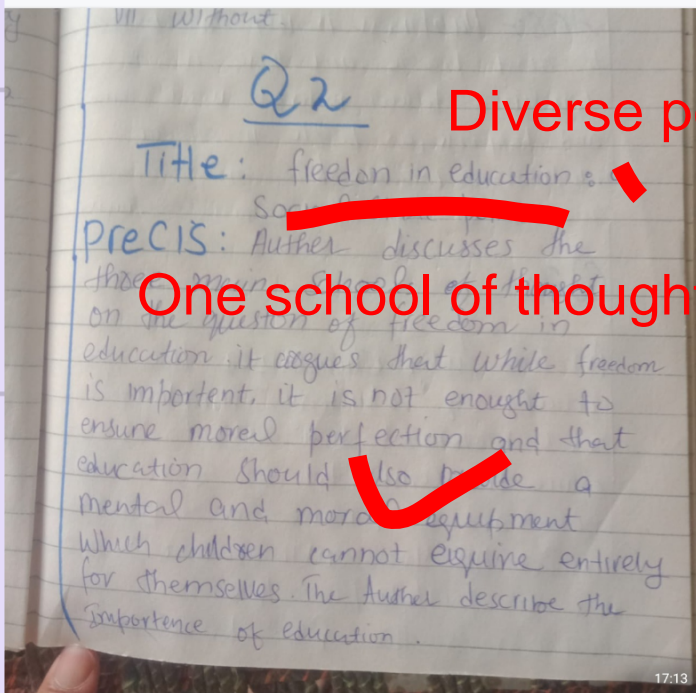 VII Without.
Q2
Diverse p
Title: freedon in education:
Precis: Auther discusses the
three main schools of thought
One school of though
on the queston of freedom in
education. it asgues that while freedom
is importent, it is not enought to
ensure moral perfection and that
education should also a
mental and moral equipment
Which children cannot eiquire entirely
for themselves. The Auther describe the
Importence of education.
17:13